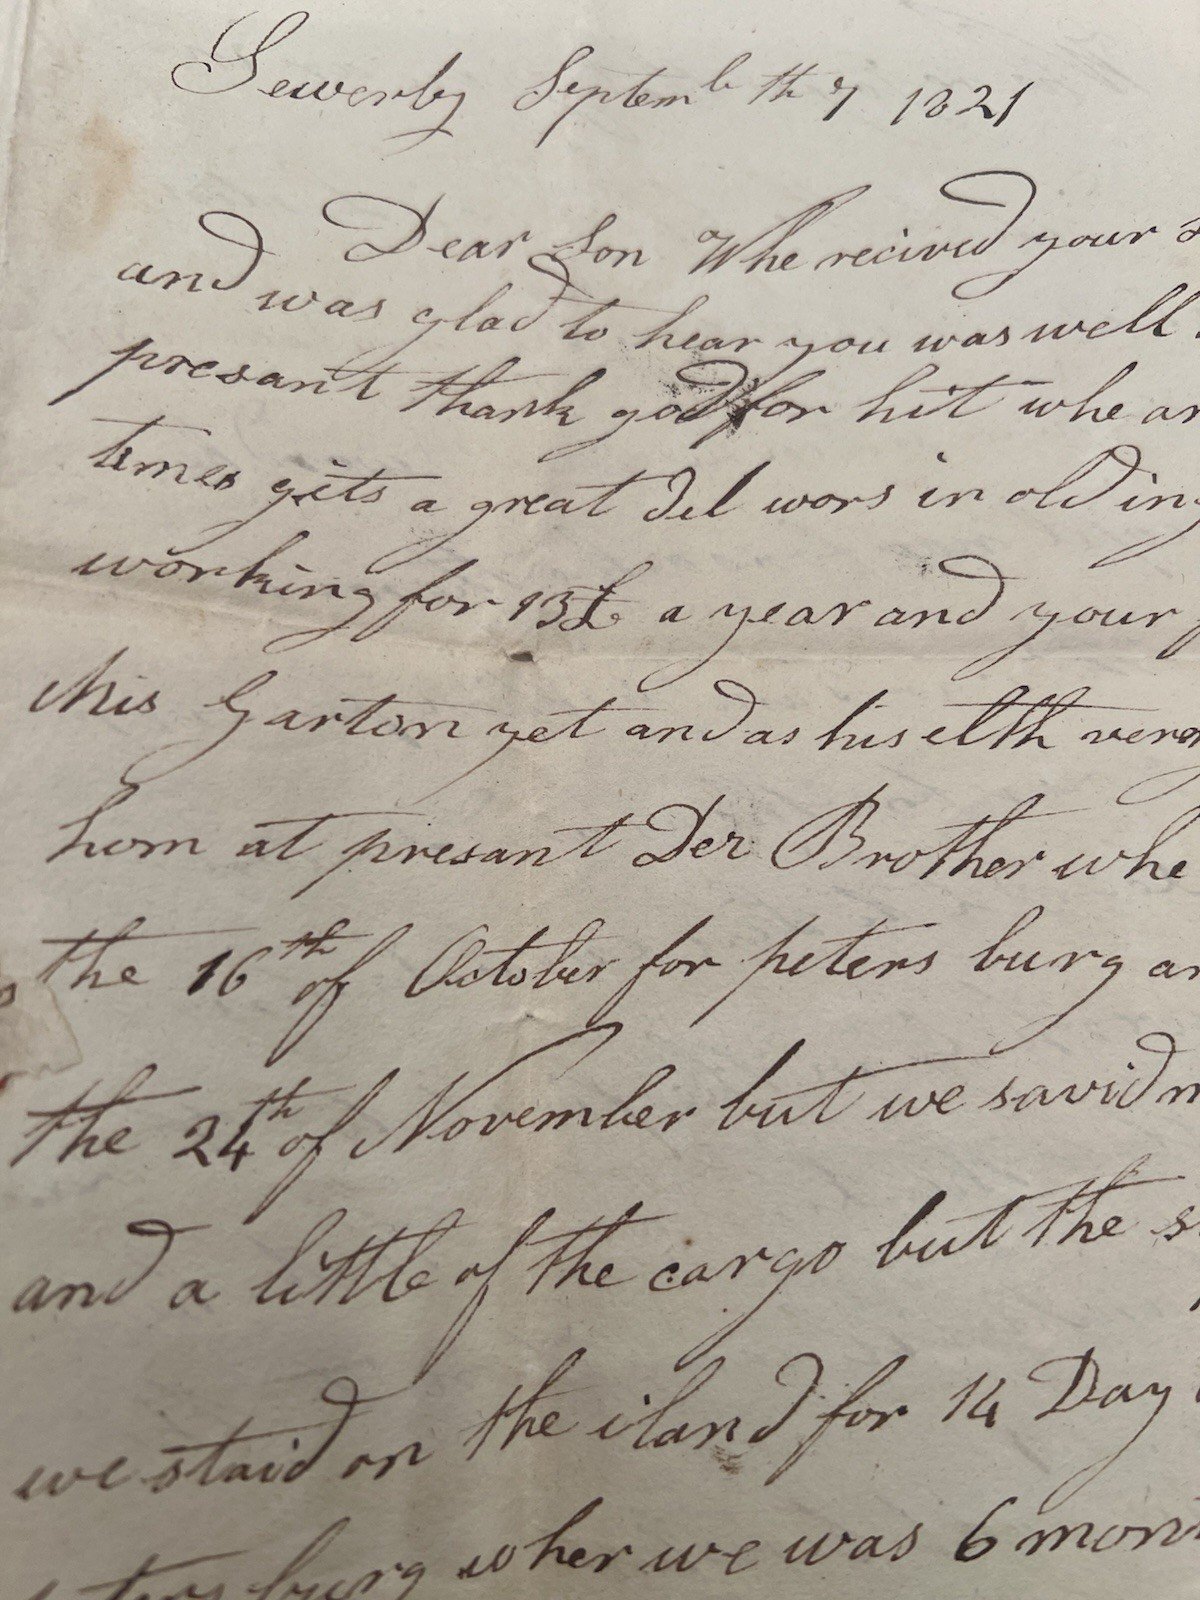 Sewerby Septemb th 7 1821
Dear Son Whe recived your
and was glad to hear you was well
presant thank god for hit whe
times gits a great del wors in old
working for 13£ a year and your
Garton yet and as his elth
hom at presant Der Brother whe
the 16th of October for peters burg
the 24th of November but we savid
and a little of the cargo but the
we staid on the iland for 14 Day
burg wher we was 6